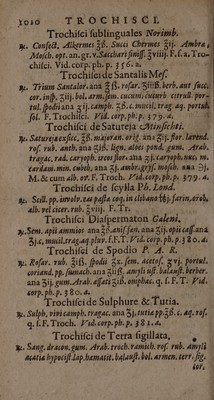 1010 TROCHISCI.
Trochisci sublinguales Norimb.
℞. Confect. Alkermes ʒß. Succi Chermes ʒij. Ambra,
Mosch. opt. an. gr. v. Sacchari finiss. ʒviiij. F. s. a. Tro-
chisci. Vid. corp. ph. p. 356. a.
Trochisci de Santalis Mes.
℞. Trium Santalor. ana ʒß. rosar. ʒiiß. berb. aut succ.
cor. insp. ʒiij. bol. arm. sem. cucum. citreor. citrull. por-
tul. spodii ana ʒij. camph. ʒß. c. mucil. trag. aq. portul.
sol. F. Trochisci. Vid. corp. ph. p. 379. a.
Trochisci de Satureja
℞. Satureja exsicc. ʒß. majoran. orig. ana ʒij. flor. lavend.
ros. rub. anth. ana ʒiß. lign. aloës pond. gum. Arab.
tragac. rad. caryoph. ireos flor. ana ʒj. caryoph. nuc. m.
cardam. min. cubeb. ana ʒj. ambr. grys. mosch. ana ʒj.
M. & cum alb. ov. F. Troch. Vid. corp. ph. p. 379. a.
Trochisci de scylla Ph. Lond.
℞. Scill. pp. involv. tas pasta coq. in clibano farin. orob.
alb. vel cicer. rub. ʒviij. F. Tr.
Trochisci Diaspermaton Galeni.
℞. Sem. apii ammios ana ʒß. anis. fæn. ana ʒij. opii cass. ana
ʒj. c. mucil. trag. aq. pluv. f. s. T. Vid. corp. ph. p. 380. a.
Trochisci de Spodio P. A. R.
℞. Rosar. rub. ʒß. spodii ʒx. sem. acetos. ʒvj. portul.
coriand. pp. sumach. ana ʒiiß. amyli ust. balaust. berber.
ana ʒij. gum. Arab. assati ʒiß. omphac. q. s. F. T. Vid.
corp. ph. p. 380. a.
Trochisci de Sulphure & Tutia.
℞. Sulph. vivi camph. tragac. ana ʒj. tutia pp. ʒß. c. aq. ros.
q. s. F. Troch. Vid. corp. ph. p. 381. a.
Trochisci de Terra sigillata,
℞. Sang. dracon. gum. Arab. troch. ramich. ros. rub. amyli
acatia hypocist. lap. hamatit. balaust. bol. armen. terr. sig-
cor.